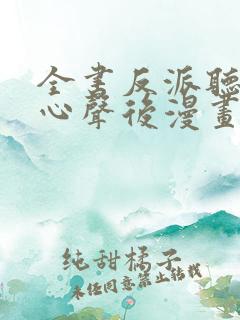 全書反派聽
心聲後漫畫
純甜橘子
未经同意禁止转载